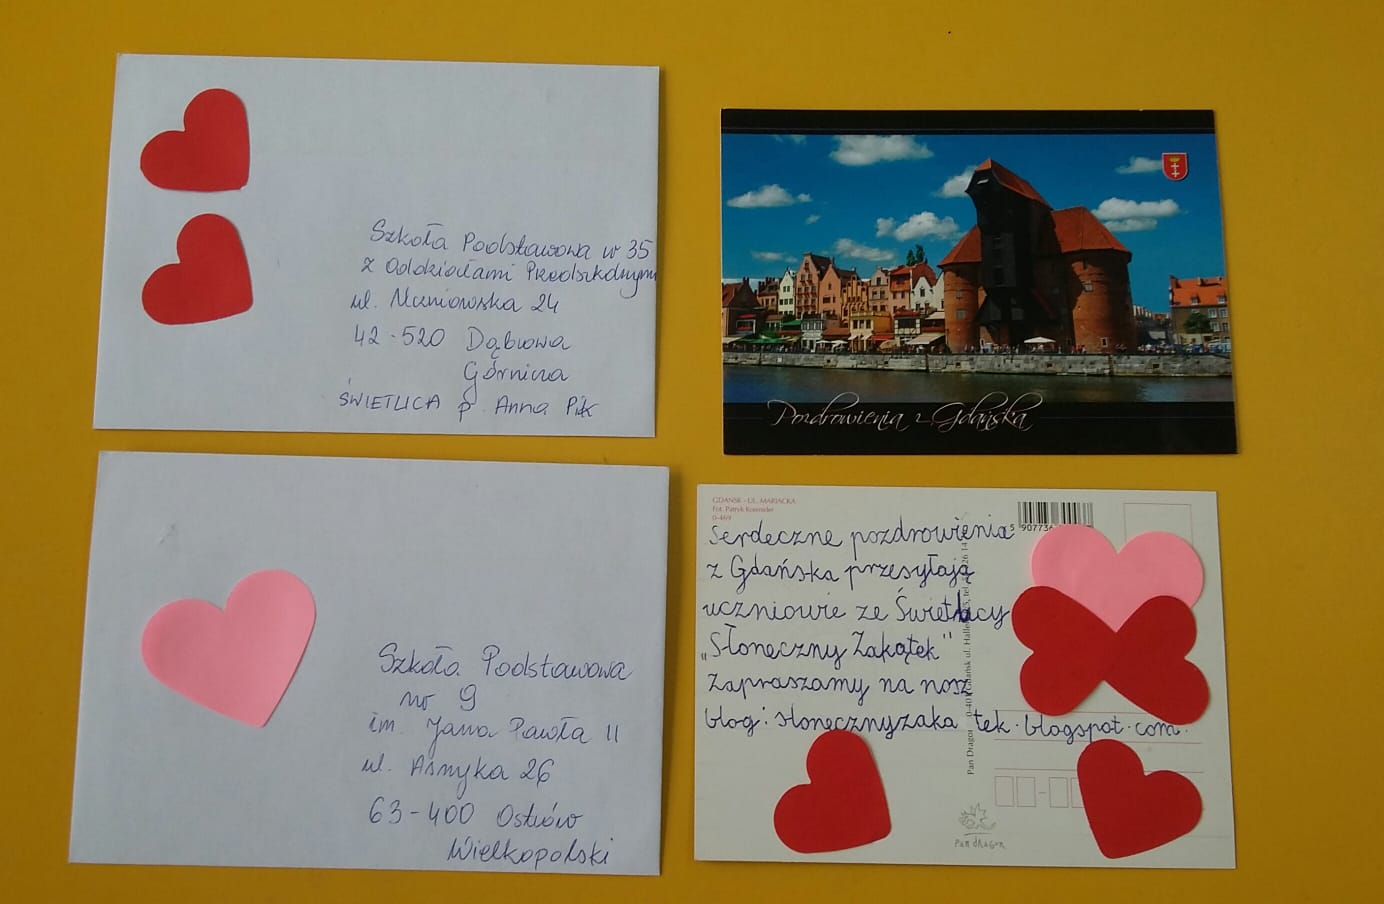 Szkoła Podstawowa nr 35
z Oddziałami Przedszkolnymi
ul.
24
42-520 Dąbrowa
Górnicza
ŚWIETLICA p. Anna Pik
Pozdrowienia z Gdańska
Szkoła Podstawowa
nr 9
im. Jana Pawła II
ul. Asnyka 26
63-400 Ostrów
Wielkopolski
GDAŃSK - UL. MARIACKA
Fot. Patryk
0-469
5 90773
Serdeczne pozdrowienia
z Gdańska przesyłają
uczniowie ze Świetlicy
„Słoneczny Zakątek"
Zapraszamy na nasz
blog: słonecznyzaka tek.blogspot.com.
Pan Dragon
Gdańsk ul.
tel.
Pan dRaGon